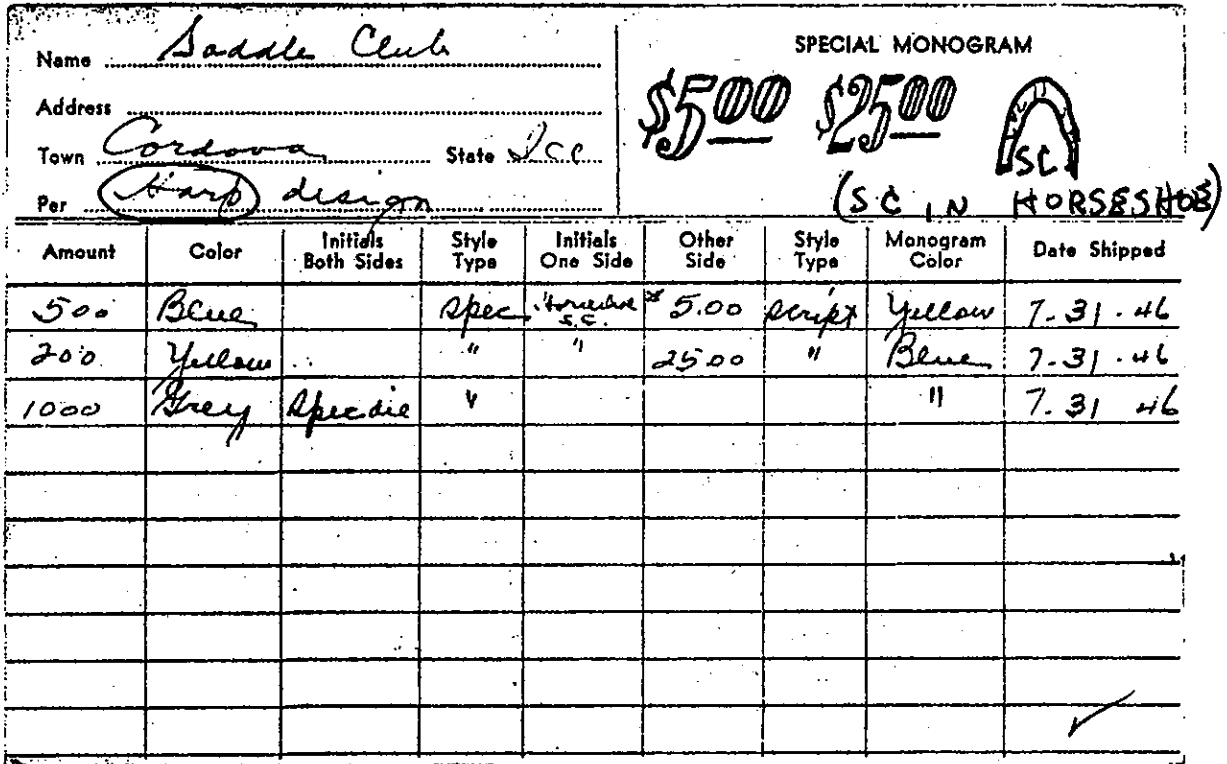 Name Saddle Club
Address
Town Cordova State Ill
Per Harp design
SPECIAL MONOGRAM
$5.00 $25.00
SC
(SC IN HORSESHOE)
Amount Color Initials Both Sides Style Type Initials One Side Other Side Style Type Monogram Color Date Shipped
500 Blue Spec. Horseshoe S.C. $5.00 script Yellow 7-31-46
200 Yellow " " 25.00 " Blue 7-31-46
1000 Grey Spec die " " 7-31 46